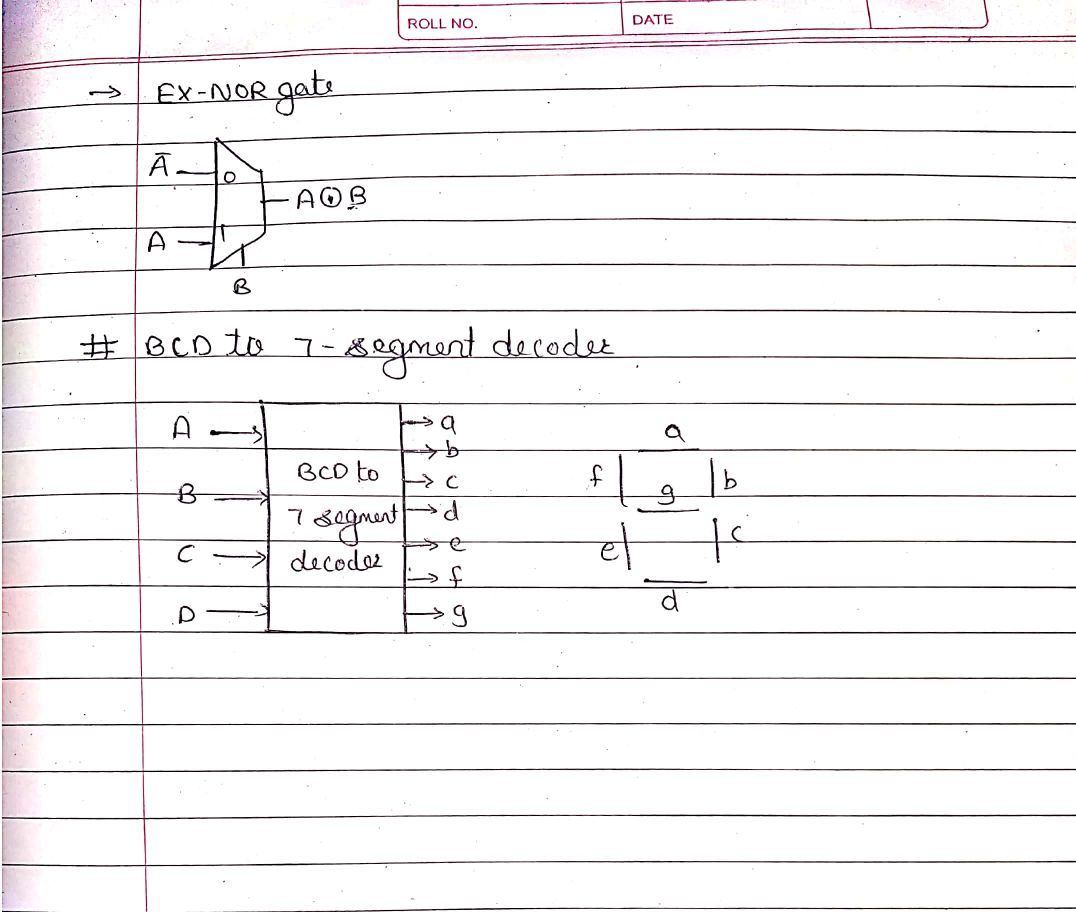 ROLL NO. DATE
→ EX-NOR gate
Ā 0
A⊙B
A 1
B
# BCD to 7-segment decoder
A
B
C
D
BCD to
7 segment
decoder
a
b
c
d
e
f
g
a
f b
g
e c
d